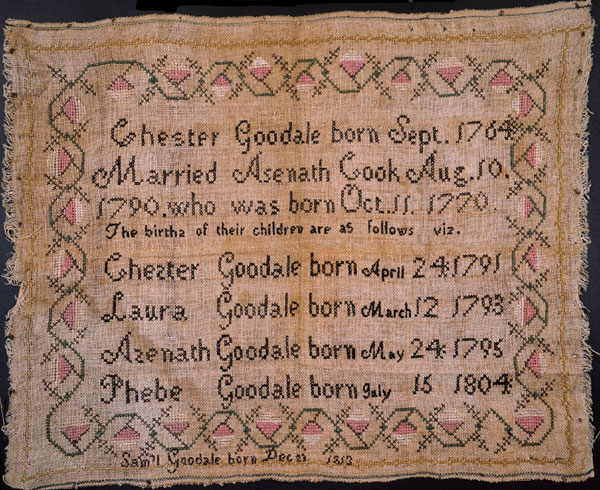 Chester Goodale born Sept. 1764
Married Asenath Cook Aug. 10.
1790. who was born Oct. 11. 1770.
The births of their children are as follows viz.
Chester Goodale born April 24 1791
Laura Goodale born March 12 1793
Azenath Goodale born May 24 1795
Phebe Goodale born July 15 1804
Sam'l Goodale born Dec 21 1813